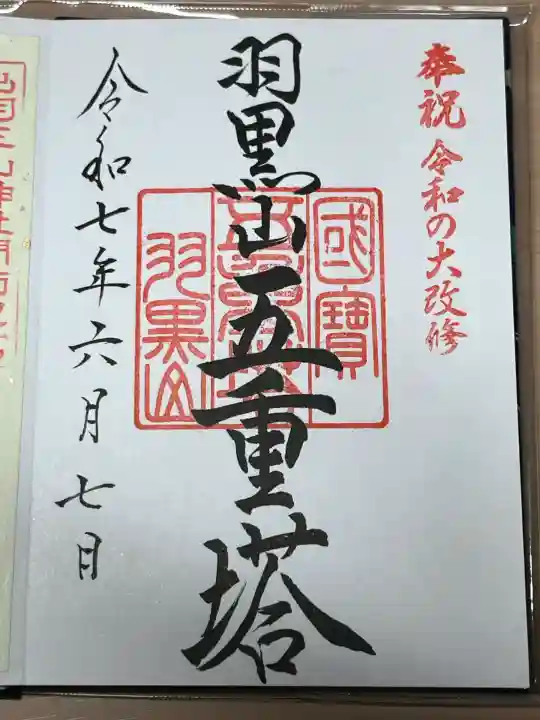 奉祝 令和の大改修
羽黒山五重塔
國寶
五重塔
羽黒山
令和七年六月七日